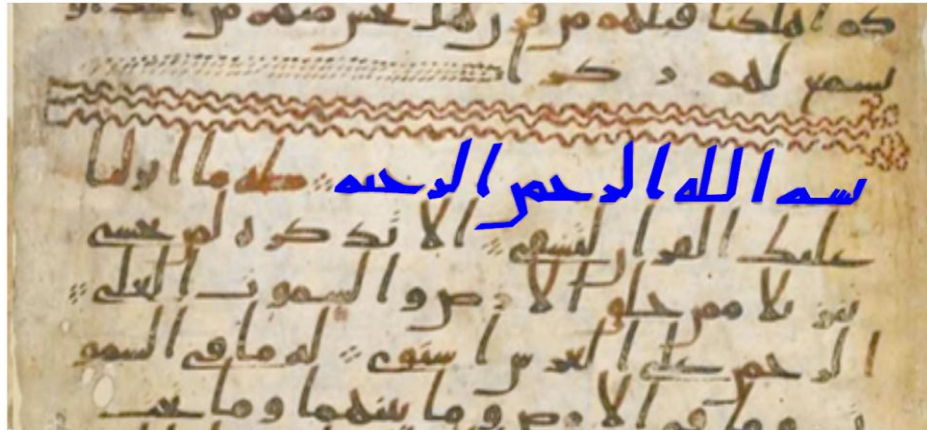 كم اهلكنا قبلهم من قرن هل تحس منهم من احد او
تسمع لهم ركزا
بسم الله الرحمن الرحيم طه ما انزلنا
عليك القران لتشقى الا تذكره لمن يخشى
تنزيلا ممن خلق الارض والسموت العلى
الرحمن على العرش استوى له ما في السمو
ت وما في الارض وما بينهما وما تحت